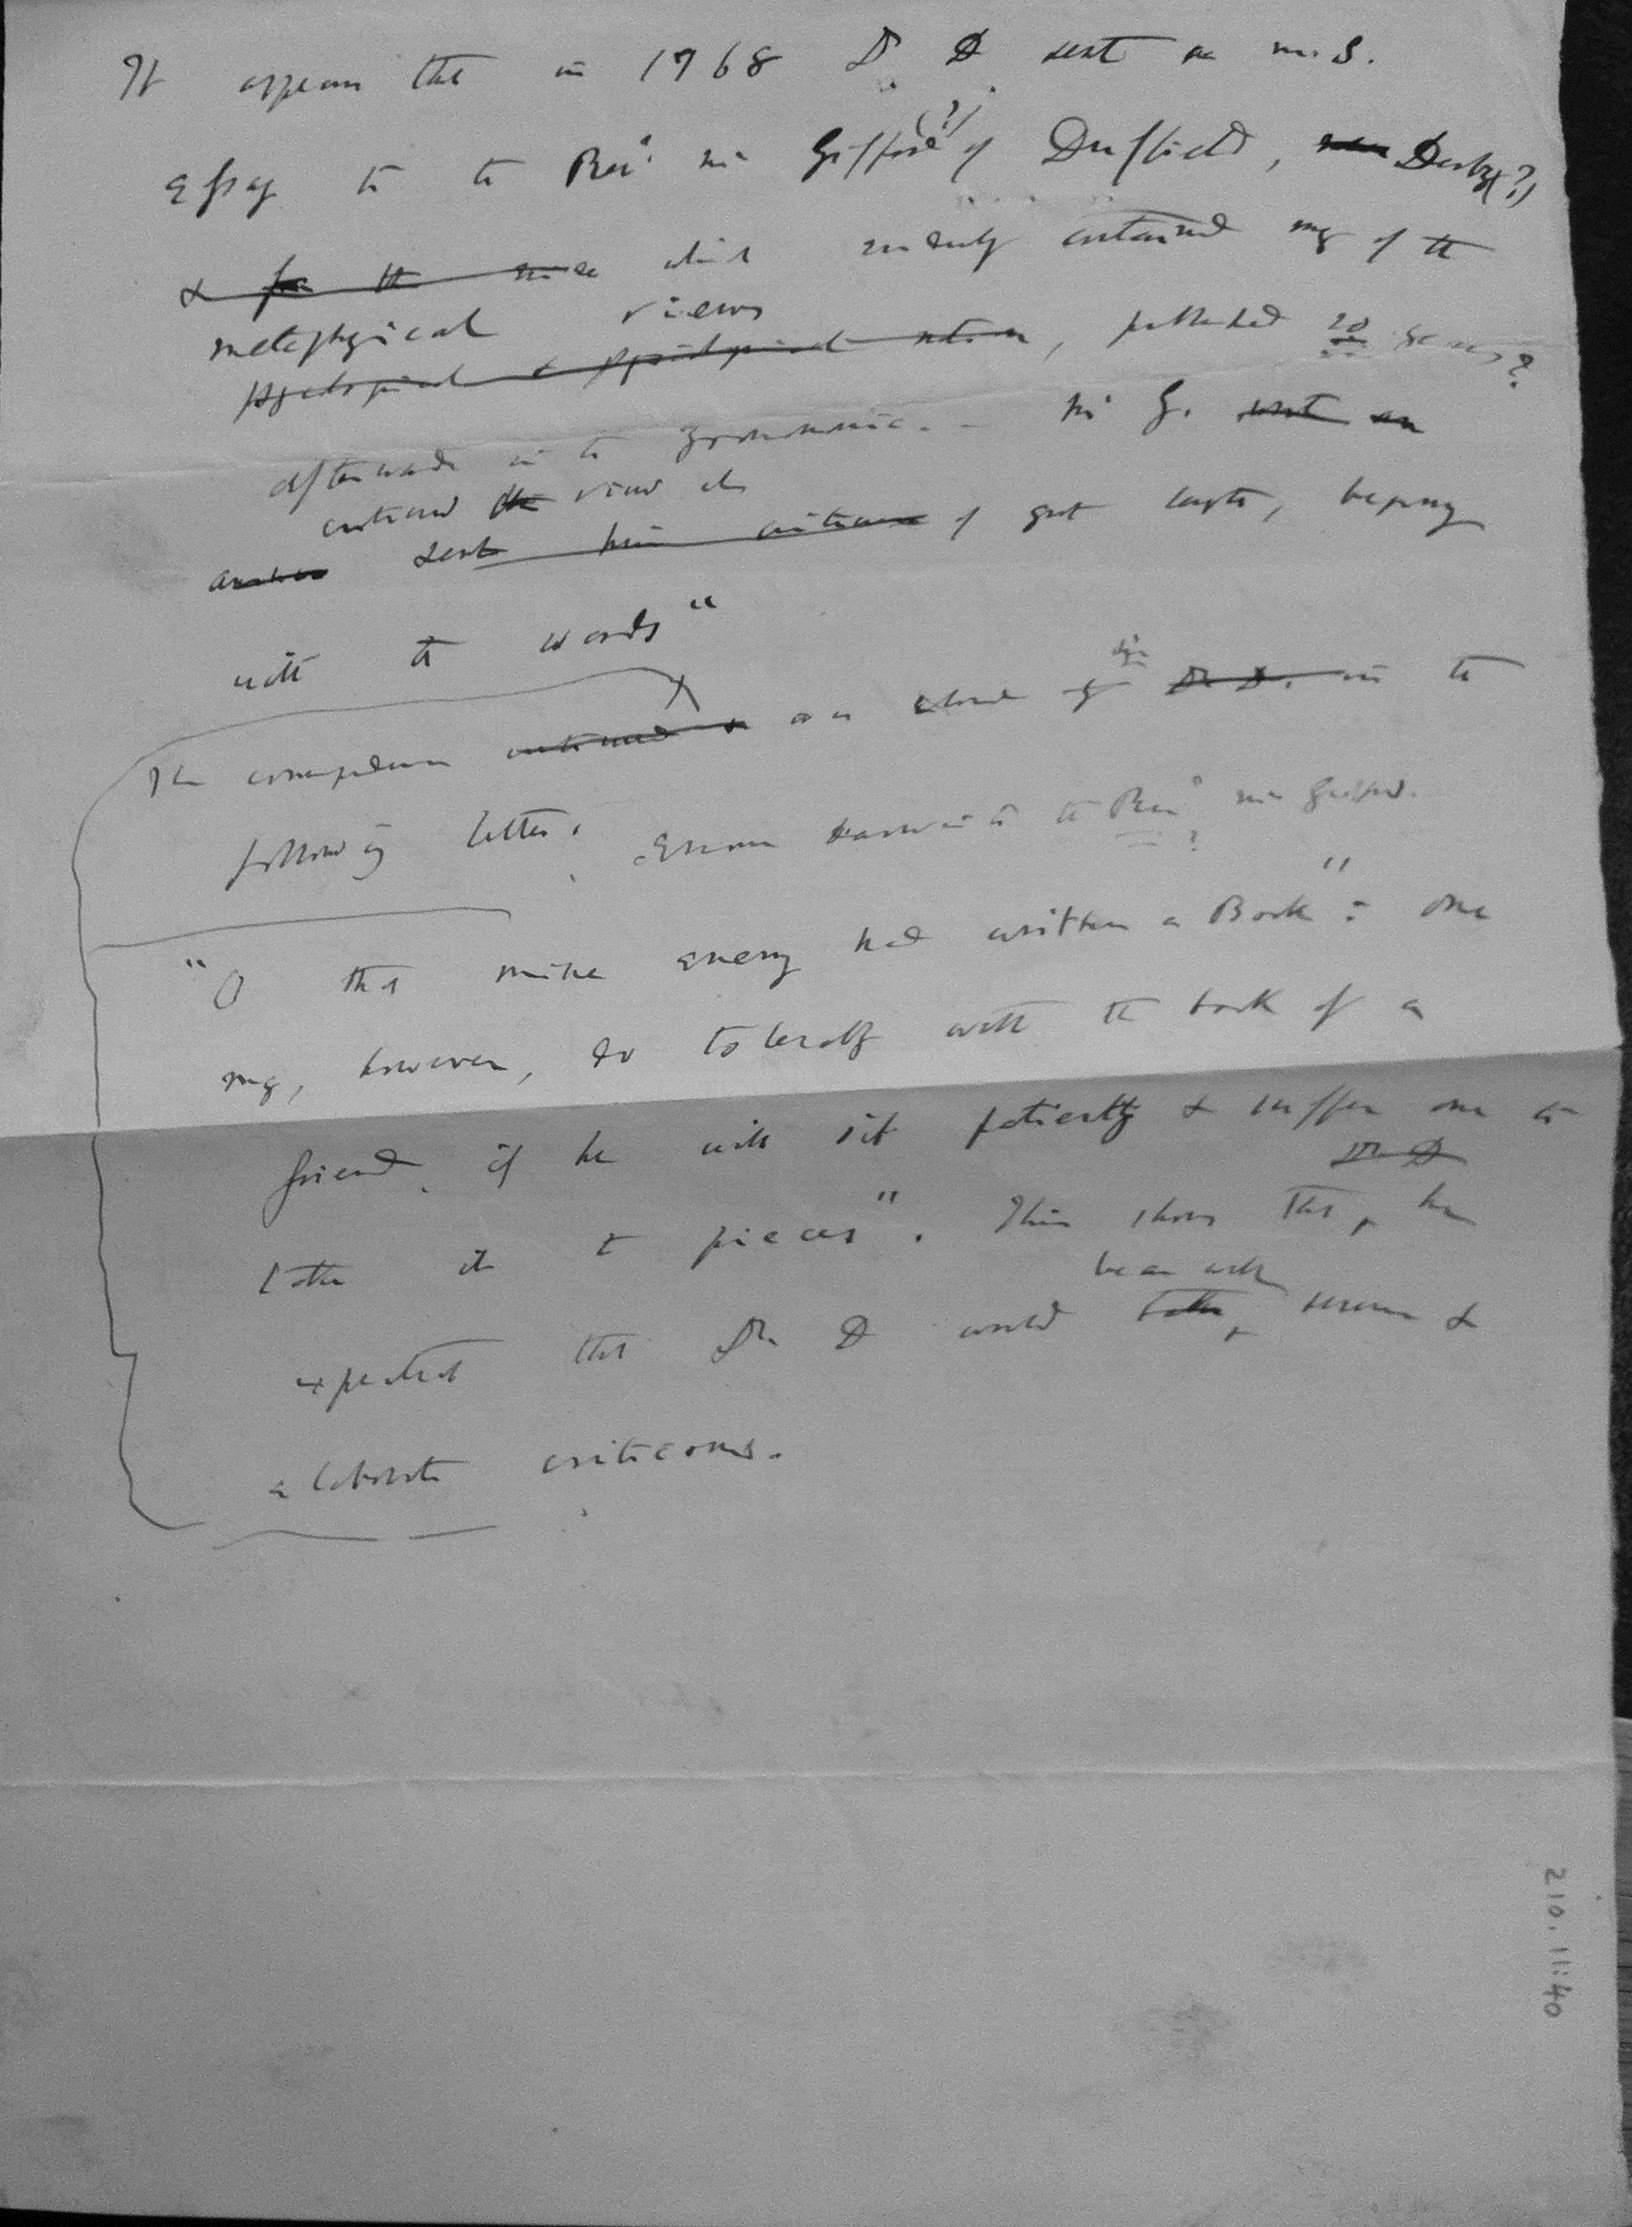 It appears that in 1768 Dr D sent a M.S.
Essay to the Revd Mr Gifford (?) of Duffield, Derby (?)
& for the which evidently contained many of the
metaphysical views
, published 20 years?
afterwards in the Zoonomia. — Mr G. sent an
criticised the view at
answer sent him criticism of great length, begging
with the words "
The correspondence continued & was closed by Dr. D. in the
following letter. Erasmus Darwin to the Revd Mr Gifford.
?
"O that mine enemy had written a Book": — one
may, however, do tolerably with the book of a
friend, if he will sit patiently & suffer one to
Dr D
take it to pieces". This shows that, he
bear with
expected that Dr D would take, severe &
elaborate criticisms.
210.11:40